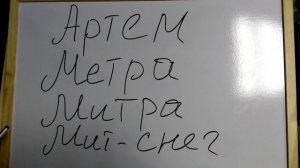 Артем
Метра
Митра
Мит-снег